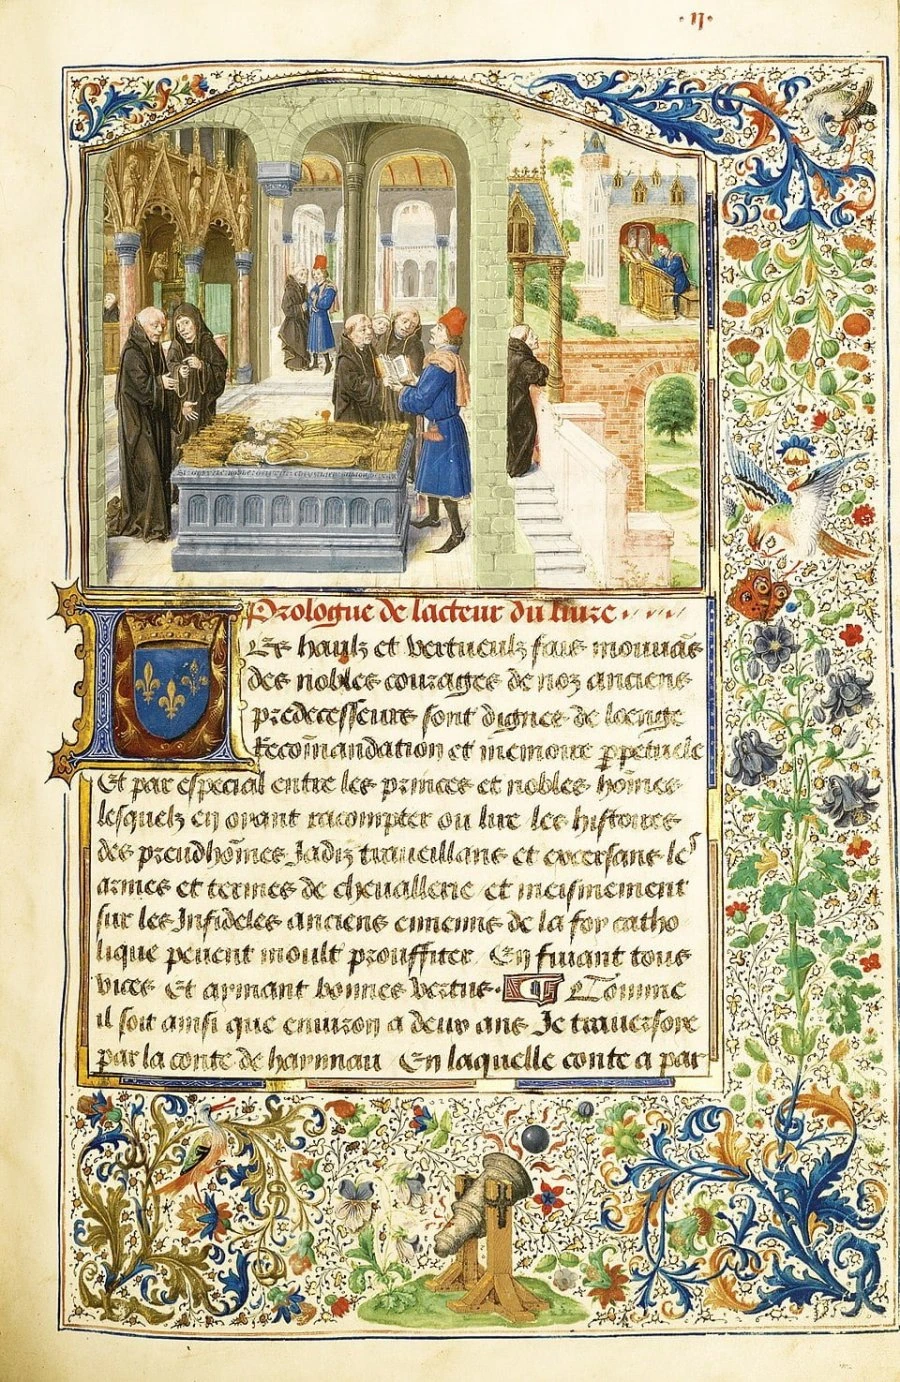 ·ij·
Prologue de lacteur du liure
Les haulz et vertueulz fais mouuās
des nobles courages de noz anciens
predecesseurs sont dignes de loenge
Recōmandation et memoire ꝑpetuele
Et par especial entre les princes et nobles hōmes
lesquelz en oyant racompter ou lire les histoires
des preudhōmes Jadiz traueillans et excersans les
armes et termes de cheuallerie et meismement
sur les Infideles anciens ennemis de la foy catho
lique peuent moult prouffiter En fuiant tous
vices Et aymant bonnes vertus· Comme
il soit ainsi que enuiron a deux ans Je trauersoye
par la conte de haynnau En laquelle conte a par